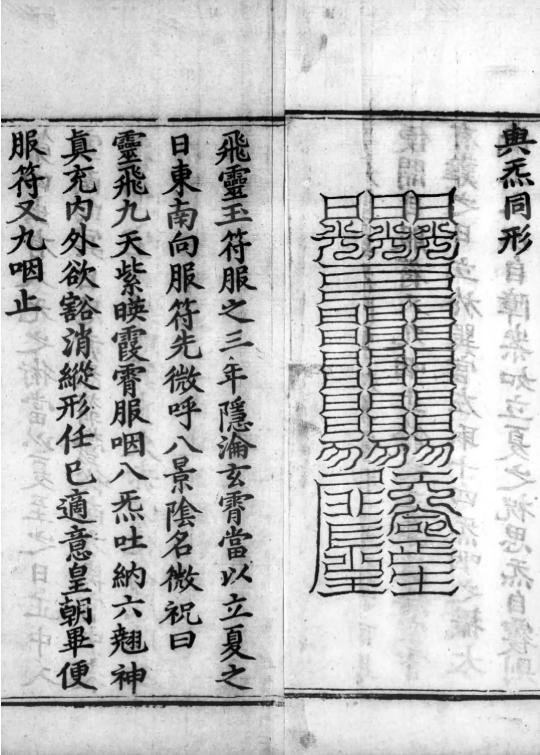 與炁同形
飛靈玉符服之三年隱淪玄霄當以立夏之
日東南向服符先微呼八景陰名微祝曰
靈飛九天紫暎霞霄服咽八炁吐納六翹神
真充内外欲豁消縱形任巳適意皇朝畢便
服符又九咽止